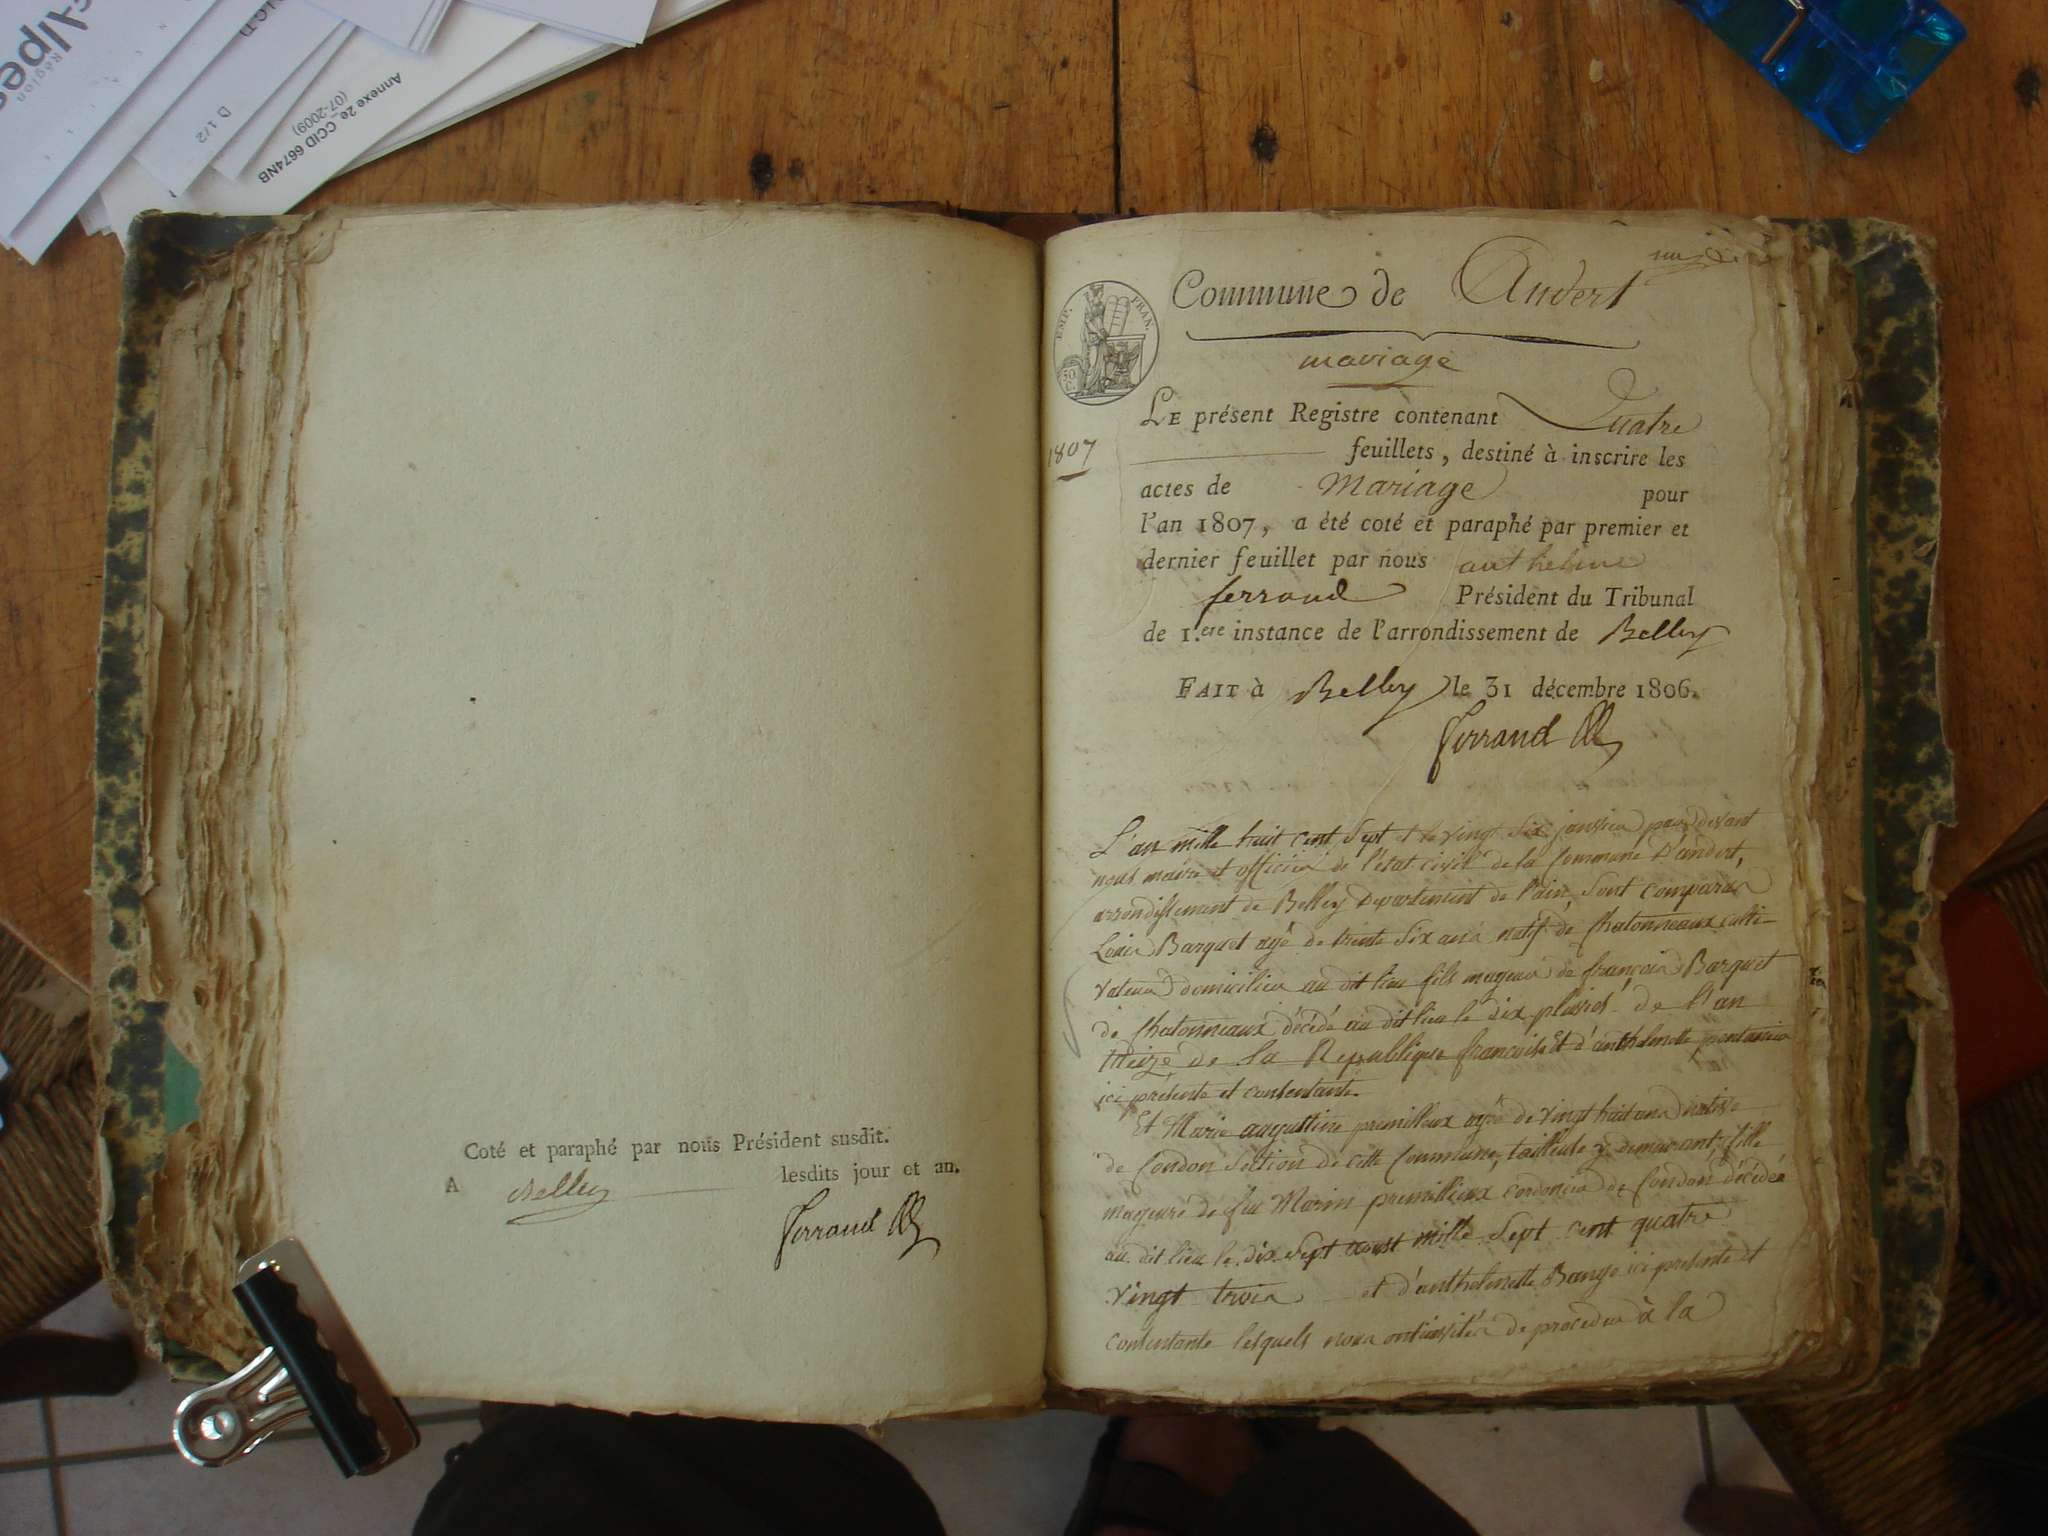 Alpes
Région
D 1/2
Annexe 2e CCID 6674NB
(07-2009)
Coté et paraphé par nous Président susdit.
A Belley lesdits jour et an.
Ferrand
Commune de Andert
EMP. FRAN.
50
C.
mariage
1807
LE présent Registre contenant Quatre
feuillets, destiné à inscrire les
actes de Mariage pour
l'an 1807, a été coté et paraphé par premier et
dernier feuillet par nous anthelme
ferrand Président du Tribunal
de 1.ere instance de l'arrondissement de Belley
FAIT à Belley le 31 décembre 1806.
Ferrand
L'an mille huit cent Sept et le vingt Six janvier par devant
nous maire et officier de l'état civil de la Commune D'andert,
arrondissement de Belley Departement de l'ain, sont comparus
Louis Barquet agé de trente Six ans natif de Chatonneaux culti-
vateur domicilier au dit lieu fils majeur de françois Barquet
de Chatonneaux décédé au dit lieu le Six pluviose de l'an
treize de la Republique francoise Et d'anthelmette
ici présente et consentante.
Et Marie augustine premillieux agée de vingt huit ans native
de Condon Section de cette Commune, tailleuse y demeurant, fille
majeure de feu Marin premillieux cordonier de Condon décédé
au dit lieu le dix Sept aoust mille Sept cent quatre
vingt trois et d'anthelmette Bange ici présente et
consentante lesquels nous ont invités de proceder à la